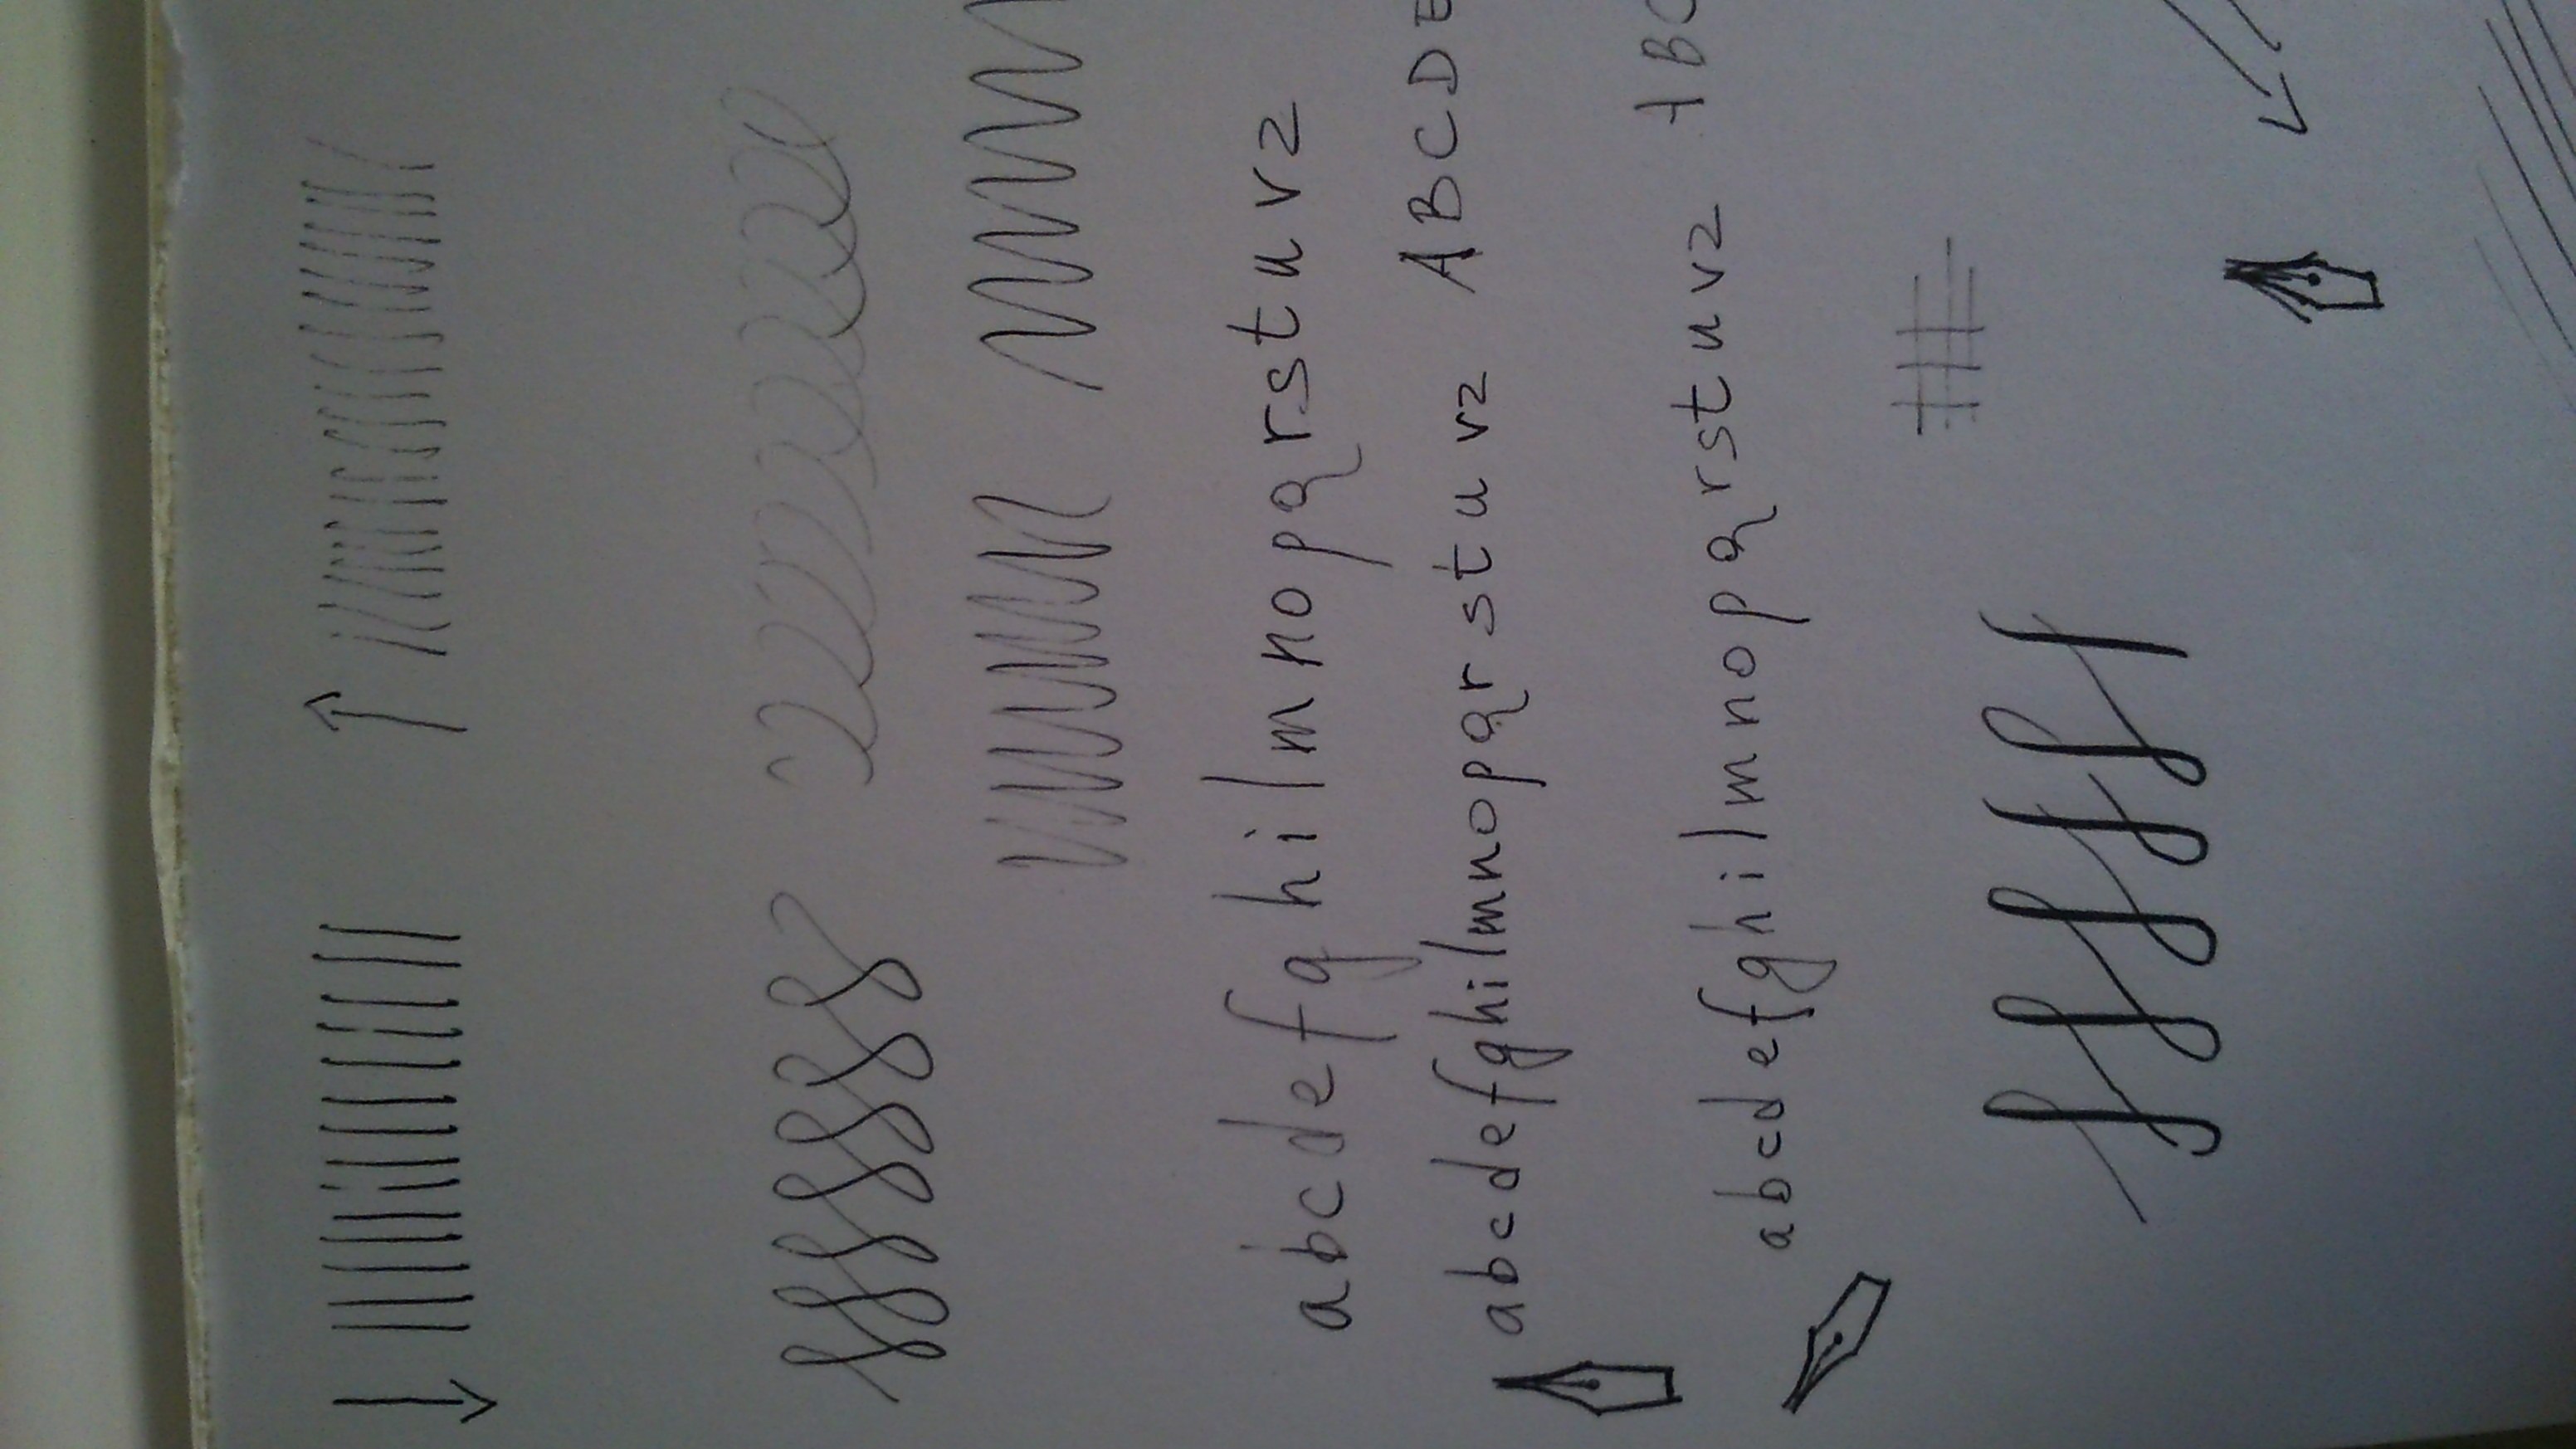 abcdefghilmnopqrstuvz
abcdefghilmnopqrstuvz ABCDE
abcdefghilmnopqrstuvz ABC